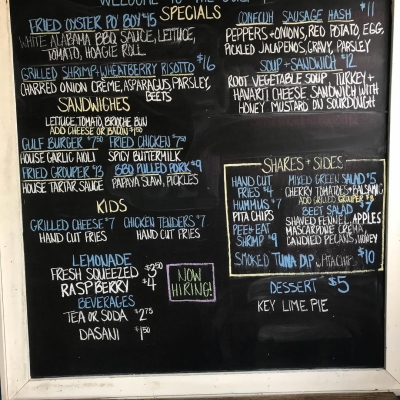 WELCOME TO THE
SPECIALS
FRIED OYSTER PO BOY $15
WHITE ALABAMA BBQ SAUCE, LETTUCE,
TOMATO, HOAGIE ROLL
GRILLED SHRIMP + WHEATBERRY RISOTTO $16
CHARRED ONION CRÈME, ASPARAGUS, PARSLEY,
BEETS
CONECUH SAUSAGE HASH $11
PEPPERS + ONIONS, RED POTATO, EGG,
PICKLED JALAPENOS, GRAVY, PARSLEY
SOUP + SANDWICH $12
ROOT VEGETABLE SOUP, TURKEY +
HAVARTI CHEESE SANDWICH WITH
HONEY MUSTARD ON SOURDOUGH
SANDWICHES
LETTUCE, TOMATO, BRIOCHE BUN
ADD CHEESE OR BACON $1.50
GULF BURGER $7.50 FRIED CHICKEN $7.50
HOUSE GARLIC AIOLI SPICY BUTTERMILK
FRIED GROUPER $13 BBQ PULLED PORK $9
HOUSE TARTAR SAUCE PAPAYA SLAW, PICKLES
KIDS
GRILLED CHEESE $7 CHICKEN TENDERS $7
HAND CUT FRIES HAND CUT FRIES
LEMONADE
FRESH SQUEEZED $3.50
RASPBERRY $4
BEVERAGES
TEA OR SODA $2.75
DASANI $1.50
NOW
HIRING!
SHARES + SIDES
HAND CUT
FRIES $4
HUMMUS $7
PITA CHIPS
PEEL + EAT
SHRIMP $9
MIXED GREEN SALAD $5
CHERRY TOMATOES + BALSAMIC
ADD GRILLED GROUPER $8
BEET SALAD $7
SHAVED FENNEL, APPLES
MASCARPONE CREMA
CANDIED PECANS, HONEY
SMOKED TUNA DIP W/ PITA CHIPS $10
DESSERT $5
KEY LIME PIE